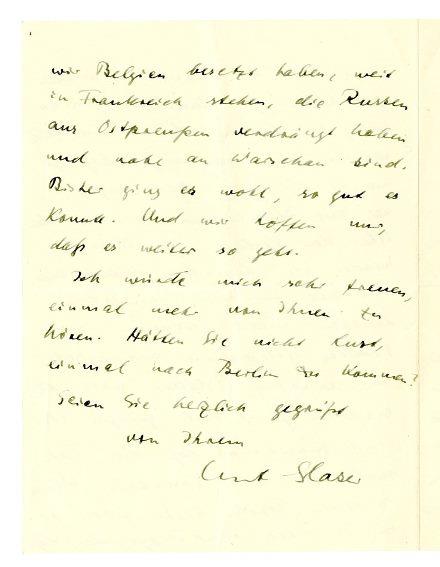 wir Belgien besetzt haben, weit
in Frankreich stehen, die Russen
aus Ostpreußen verdrängt haben
und nahe an Warschau sind.
Bisher ging es wohl, so gut es
konnte. Und wir hoffen nur,
daß es weiter so geht.
Ich würde mich sehr freuen,
einmal mehr von Ihnen zu
hören. Hätten Sie nicht Lust,
einmal nach Berlin zu kommen?
Seien Sie herzlich gegrüßt
von Ihrem
Curt Glaser